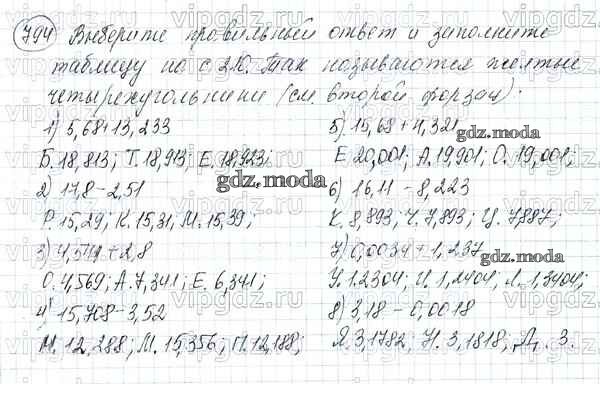 794 Выберите правильный ответ и заполните
таблицу на с 210. Так называются желтые
четырехугольники (см. второй форзац).
1) 5,68+13,233
Б. 18,813; Т. 18,913; Е. 18,923;
2) 17,8-2,51
Р. 15,29; К. 15,31; М. 15,39;
3) 4,541+2,8
О. 4,569; А. 7,341; Е. 6,341;
4) 15,708-3,52
М. 12,288; М. 15,356; П. 12,188;
5) 15,68+4,321
Е 20,001; А. 19,901; О. 19,001;
6) 16,11-8,223
К. 8,893; Ч. 7,893; Ц. 7,887;
7) 0,0034+1,237
У. 1.2304; И. 1,2404; Л. 1,3404;
8) 3,18-0,0018
Я. 3,1782; Н. 3,1818; Д. 3.
gdz.moda
gdz.moda
gdz.moda
gdz.moda
vipgdz.ru